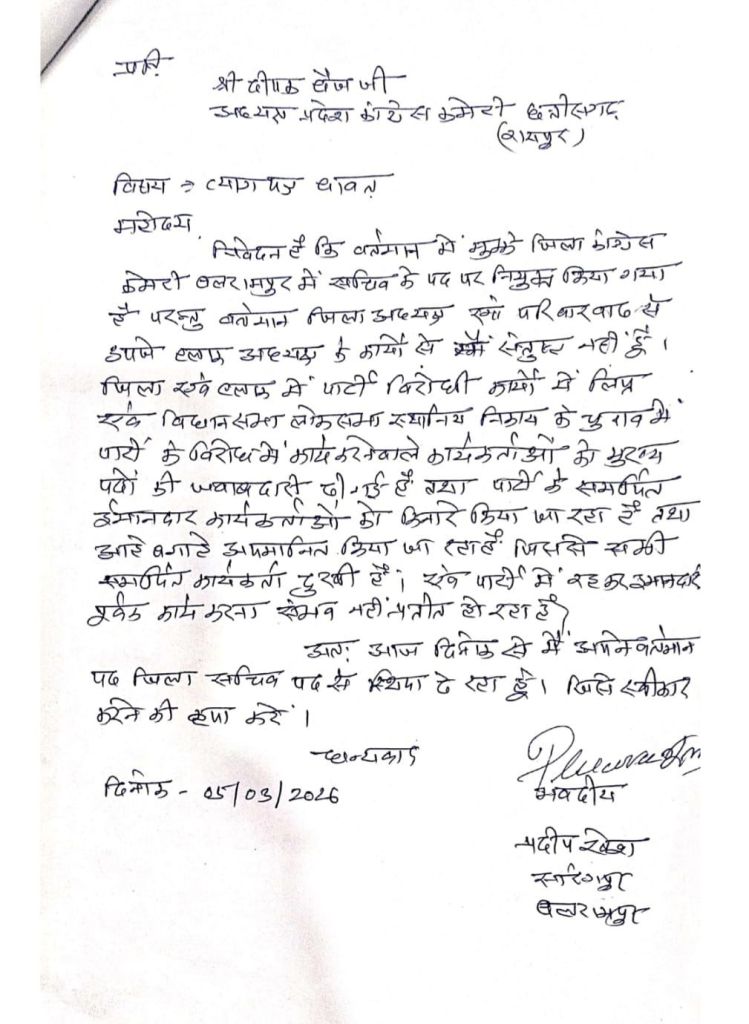 प्रति
श्री दीपक बैज जी
अध्यक्ष प्रदेश कांग्रेस कमेटी छत्तीसगढ़
(रायपुर)
विषय :- त्याग पत्र बावत्
महोदय,
निवेदन है कि वर्तमान में मुझे जिला कांग्रेस
कमेटी बलरामपुर में सचिव के पद पर नियुक्त किया गया
है परन्तु वर्तमान जिला अध्यक्ष एवं परिवारवाद से
उपजे ब्लाक अध्यक्ष के कार्यो से मैं संतुष्ट नहीं हूँ।
जिला एवं ब्लाक में पार्टी विरोधी कार्यो में लिप्त
एवं विधानसभा लोकसभा स्थानिय निकाय के चुनाव में
पार्टी के विरोध में कार्य करनेवाले कार्यकर्ताओं को मुख्य
पदों की जवाबदारी दी गई है तथा पार्टी के समर्पित
ईमानदार कार्यकर्ताओं को किनारे किया जा रहा है तथा
आहे बगाहे अपमानित किया जा रहा है जिससे सभी
समर्पित कार्यकर्ता दुखी है। एवं पार्टी में रह कर इमानदारी
पूर्वक कार्य करना संभव नहीं प्रतीत हो रहा है
अतः आज दिनांक से मैं अपने वर्तमान
पद जिला सचिव पद से स्थिपा दे रहा हूँ। जिसे स्वीकार
करने की कृपा करें।
धन्यवाद
दिनांक - 05/03/2026
भवदीय
प्रदीप
बलरामपुर